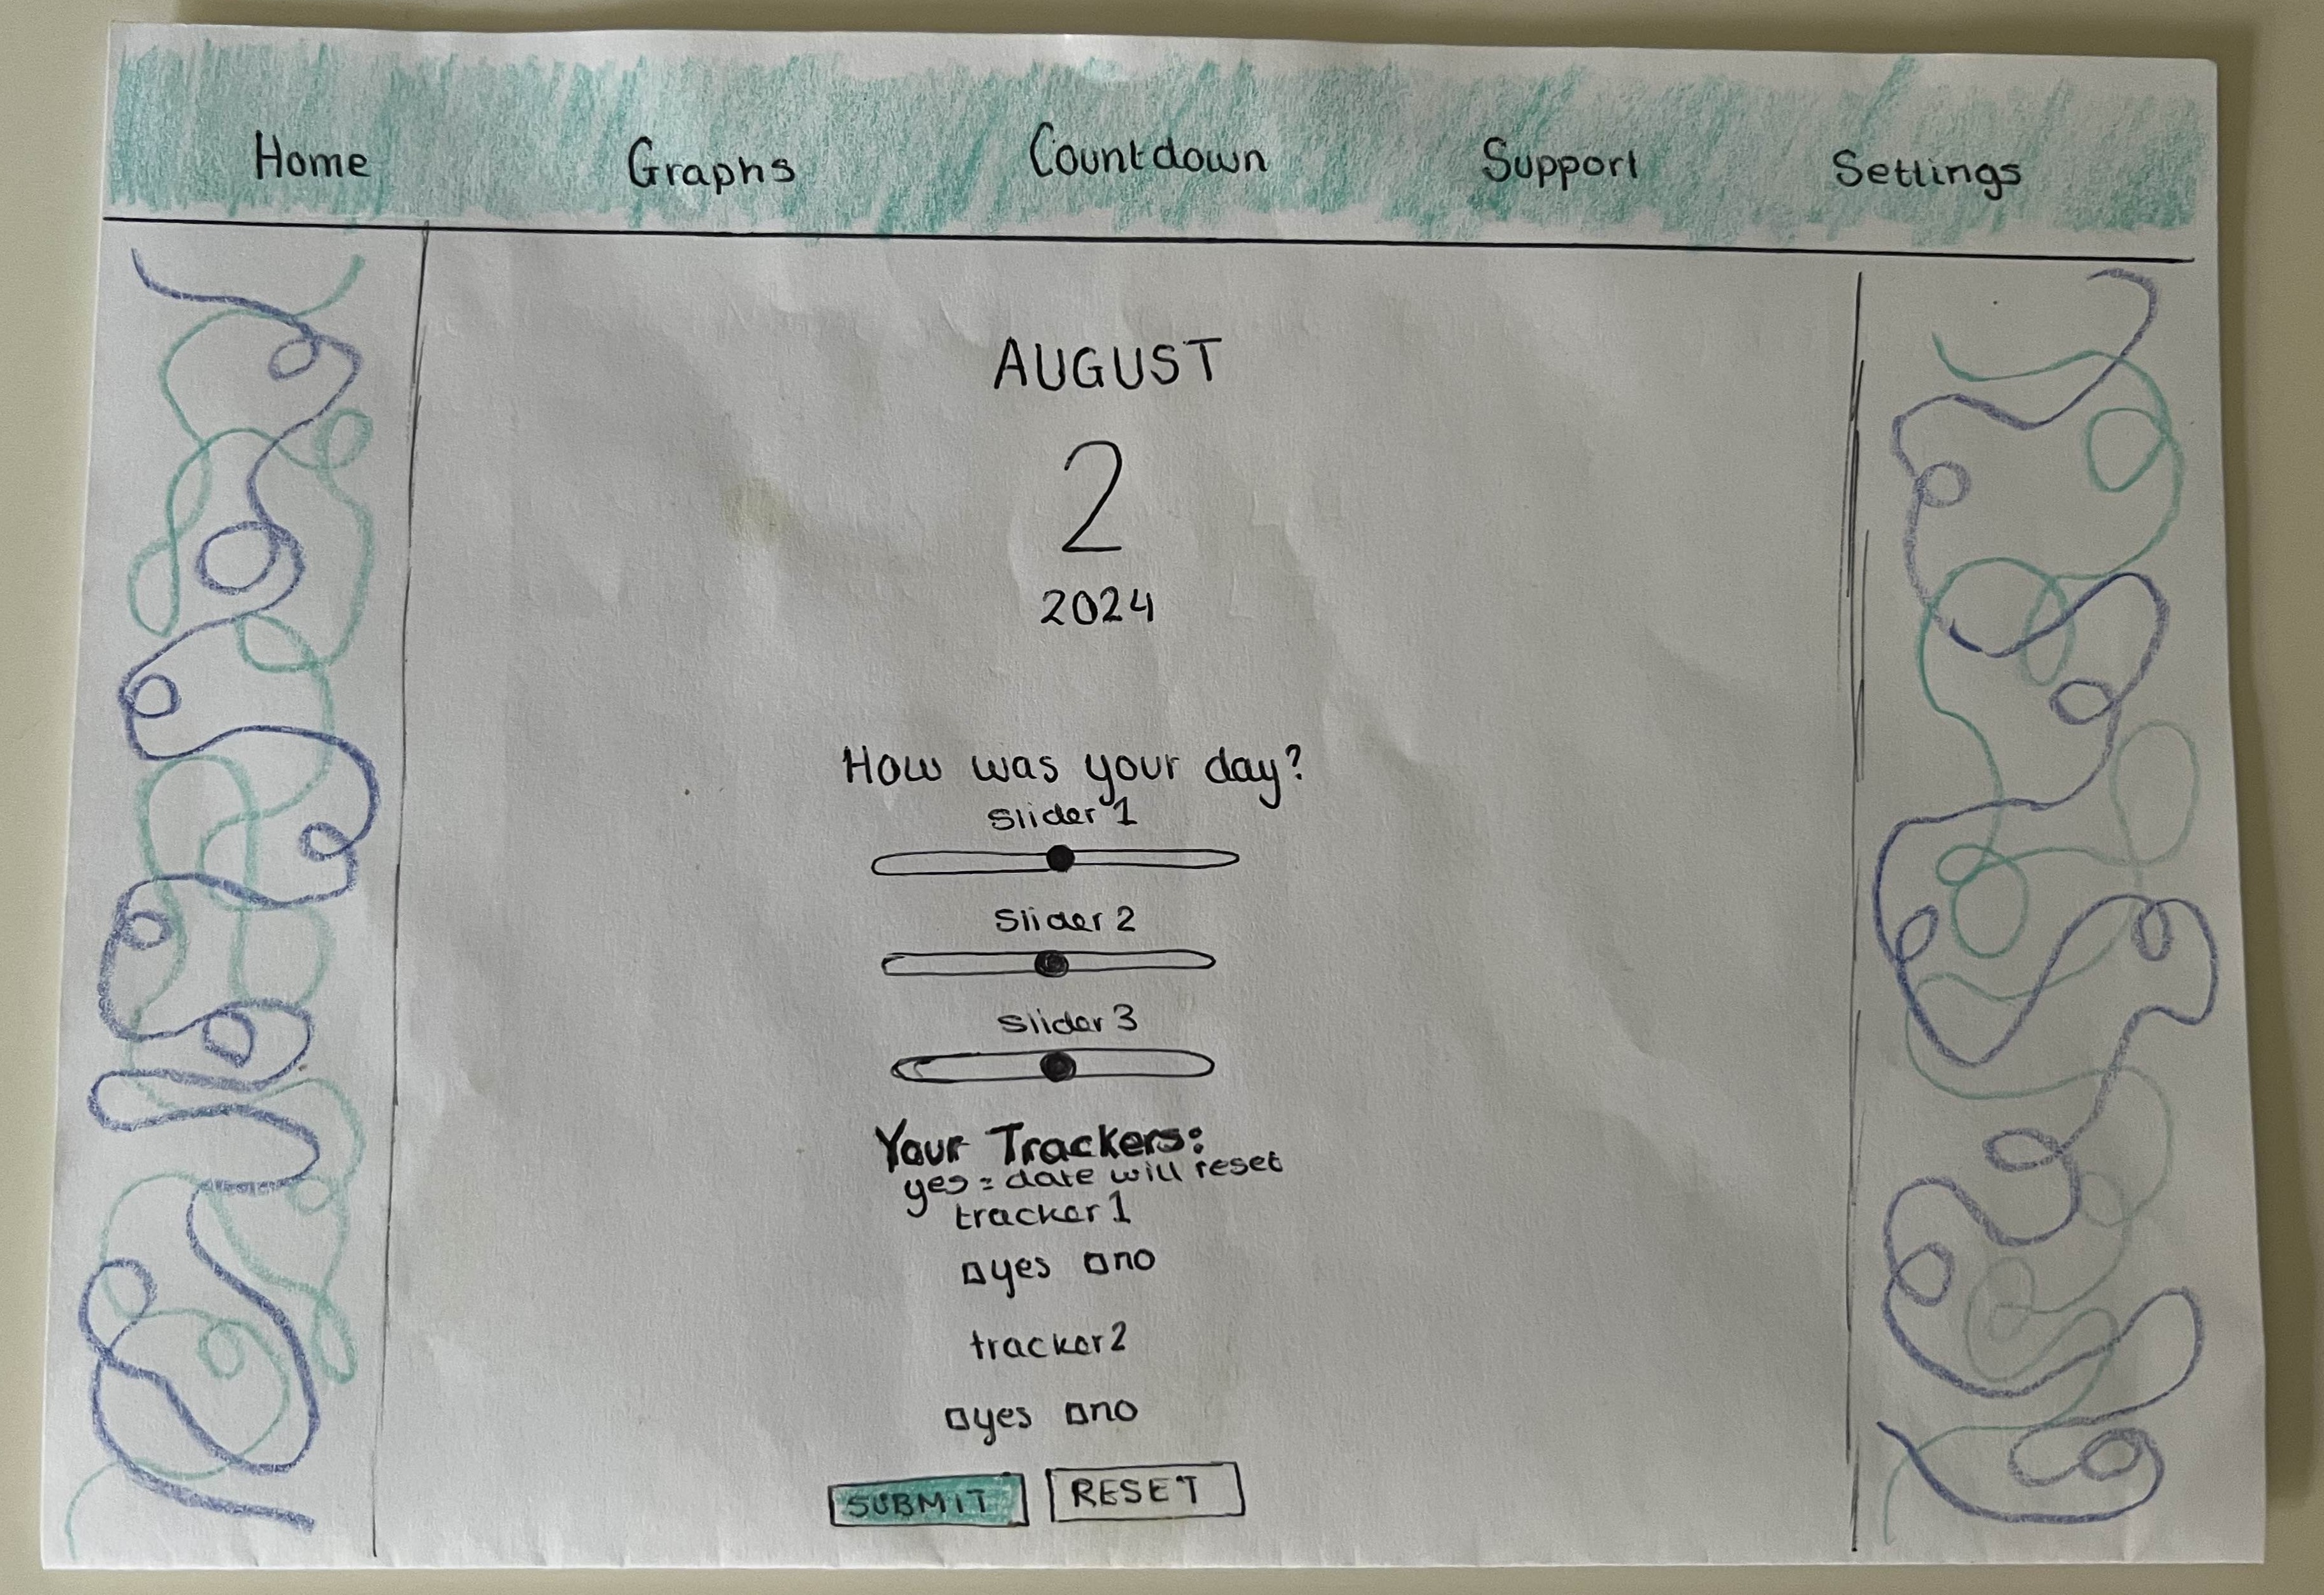 Home Graphs Countdown Support Settings
AUGUST
2
2024
How was your day?
Slider 1
Slider 2
Slider 3
Your Trackers:
yes = date will reset
tracker 1
yes no
tracker 2
yes no
SUBMIT RESET